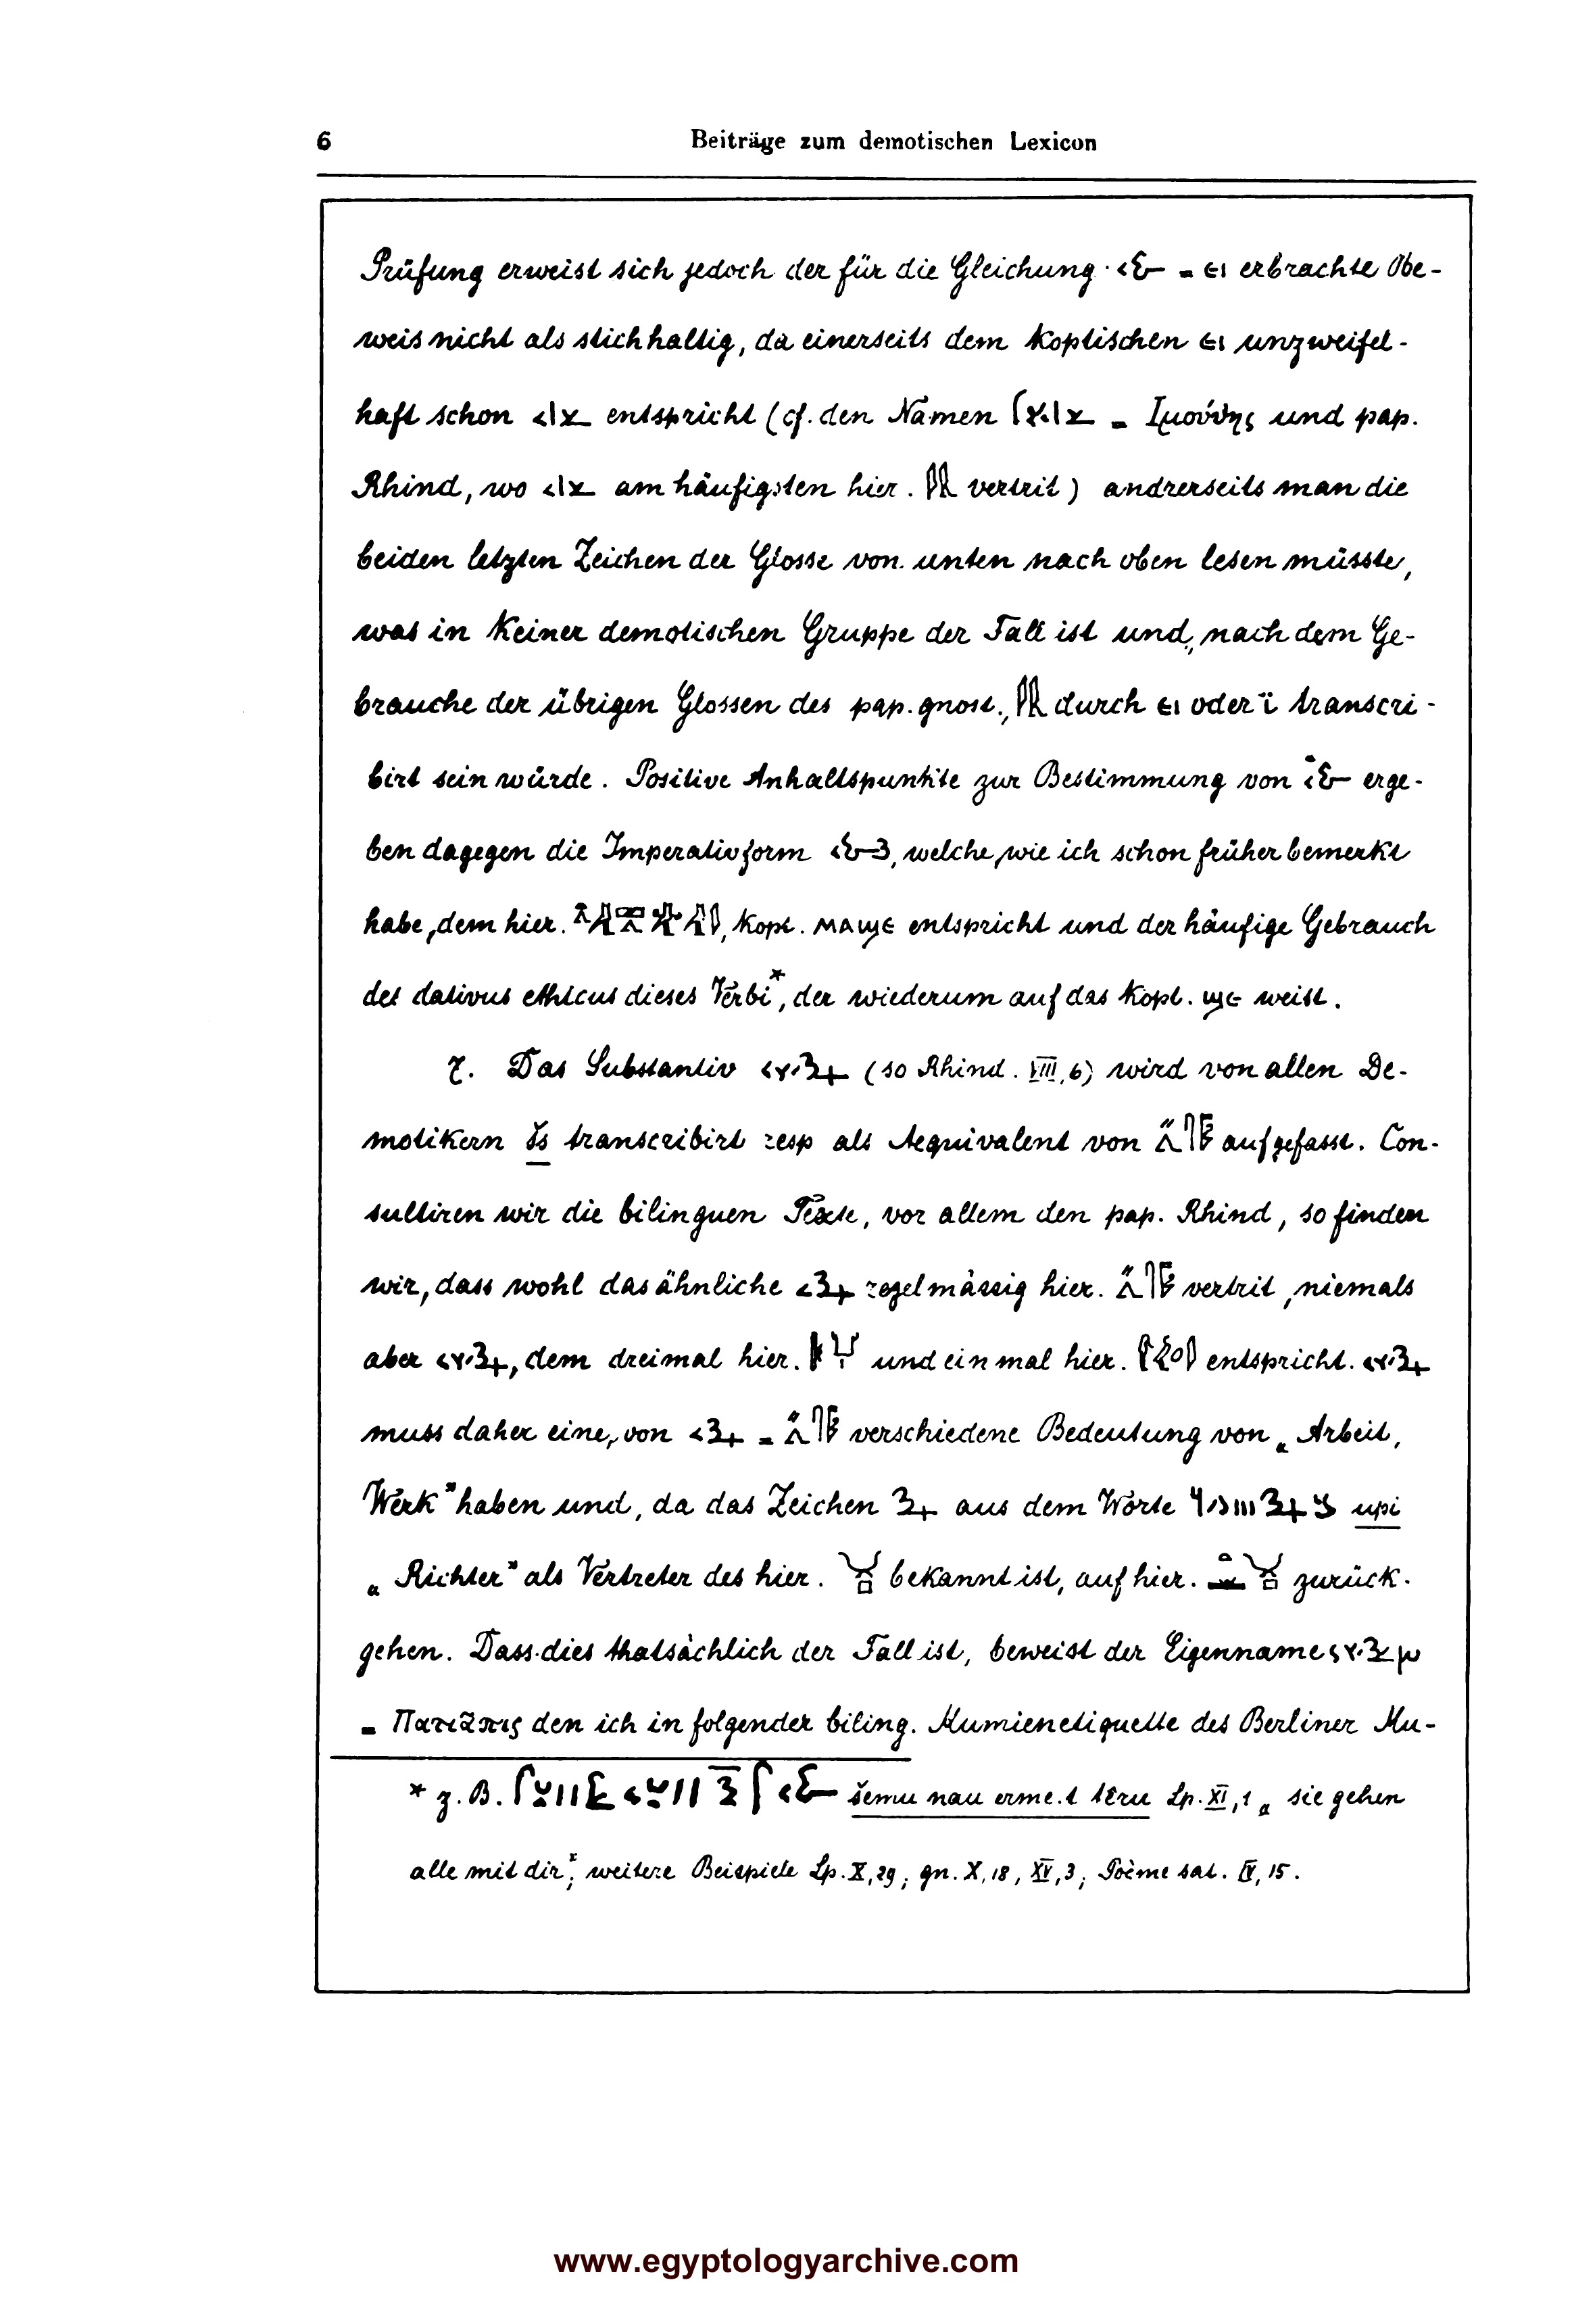 6 Beiträge zum demotischen Lexicon
Prüfung erweist sich jedoch der für die Gleichung = ⲉⲓ erbrachte Be-
weis nicht als stichhaltig, da einerseits dem koptischen ⲉⲓ unzweifel-
haft schon entspricht (cf. den Namen = Ιμούθης und pap.
Rhind, wo am häufigsten hier. vertrit) andrerseits man die
beiden letzten Zeichen der Glosse von unten nach oben lesen müsste,
was in keiner demotischen Gruppe der Fall ist und, nach dem Ge-
brauche der übrigen Glossen des pap. gnost., durch ⲉⲓ oder ï transcri-
birt sein würde. Positive Anhaltspunkte zur Bestimmung von erge-
ben dagegen die Imperativform , welche, wie ich schon früher bemerkt
habe, dem hier. , kopt. ⲙⲁϣⲉ entspricht und der häufige Gebrauch
des dativus ethicus dieses Verbi*, der wiederum auf das kopt. ϣⲉ weist.
7. Das Substantiv (so Rhind. VIII, 6) wird von allen De-
motikern transcribirt resp als Aequivalent von aufgefasst. Con-
sultiren wir die bilinguen Texte, vor allem den pap. Rhind, so finden
wir, dass wohl das ähnliche regelmässig hier. vertrit, niemals
aber , dem dreimal hier. und ein mal hier. entspricht.
muss daher eine, von = verschiedene Bedeutung von „Arbeit,
Werk" haben und, da das Zeichen aus dem Worte upi
„Richter" als Vertreter des hier. bekannt ist, auf hier. zurück-
gehen. Dass dies thatsächlich der Fall ist, beweist der Eigenname
= den ich in folgender biling. Mumienetiquette des Berliner Mu-
* z. B. šemu nau erme.t tēru Lp. XI, 1 „sie gehen
alle mit dir"; weitere Beispiele Lp. X, 29; gn. X, 18, XV, 3; Poème sat. IV, 15.
www.egyptologyarchive.com